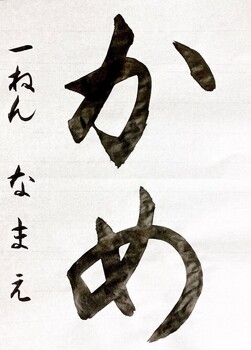 かめ
一ねん なまえ